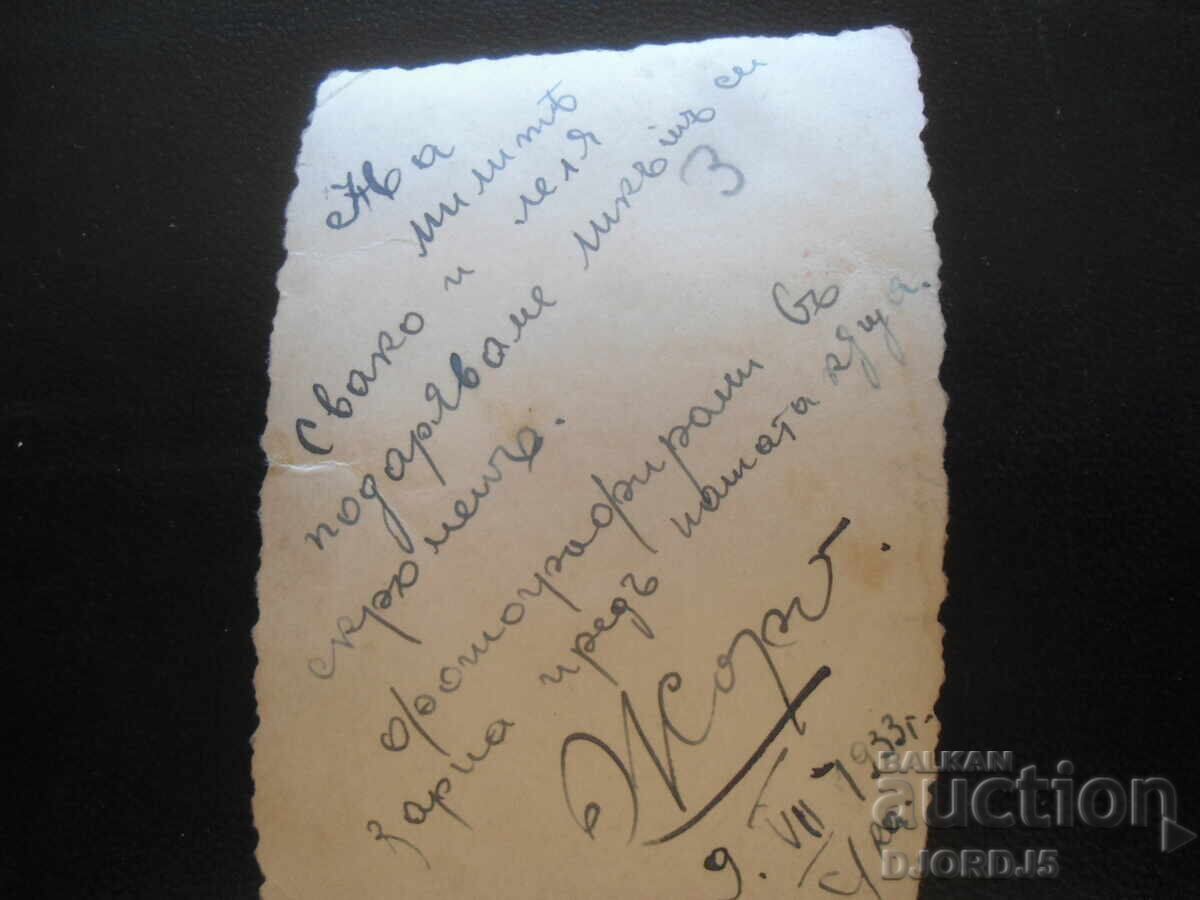 На милитѣ
Свако и леля
подаряваме ликътъ си
скроменъ.
3
Фотографирани въ
зарна предъ нашата кѫща.
Жорж.
9. VII 1933г.
BALKAN
auction
DJORDJ5